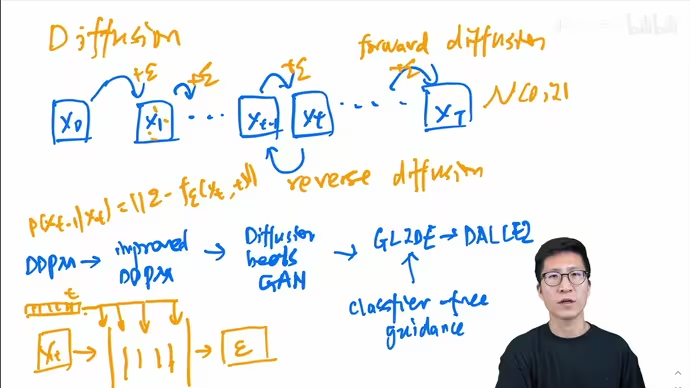 Diffusion
forward diffusion
+ε +ε +ε +ε
X0 X1 ... Xt-1 Xt ... XT N(0,I)
reverse diffusion
P(Xt-1|Xt) = ||ε - fε(Xt, t)||
DDPM → improved DDPM → Diffusion beats GAN → GLIDE → DALLE2
classfier-free
guidance
t
Xt → → ε
bilibili